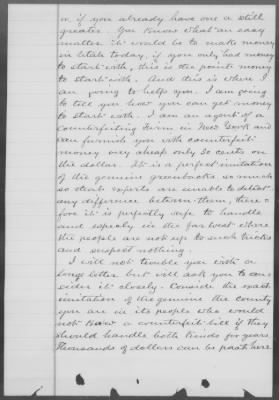 or if you already have one a still
greater. You know what an easy
matter it would be to make money
in Utah today, if you only had money
to start with, this is the point money
to start with. And this is where I
am going to help you. I am going
to tell you how you can get money
to start with. I am an agent of a
counterfeiting firm in New York and
can furnish you with counterfeit
money
on the dollar. It is a perfect imitation
of the genuine greenbacks so much
so that experts are unable to detect
any difference between them, there
fore it is perfectly safe to handle
and safely in the far west where
the people are not up to such tricks
and suspect nothing.
I will not trouble you with a
longe letter but will ask you to con
sider it closely. Conside the exact
imitation of the genuine the county
you are in its people who would
not know a counterfeit bill if they
should handle both kinds for years
thousands of dollars can be past here